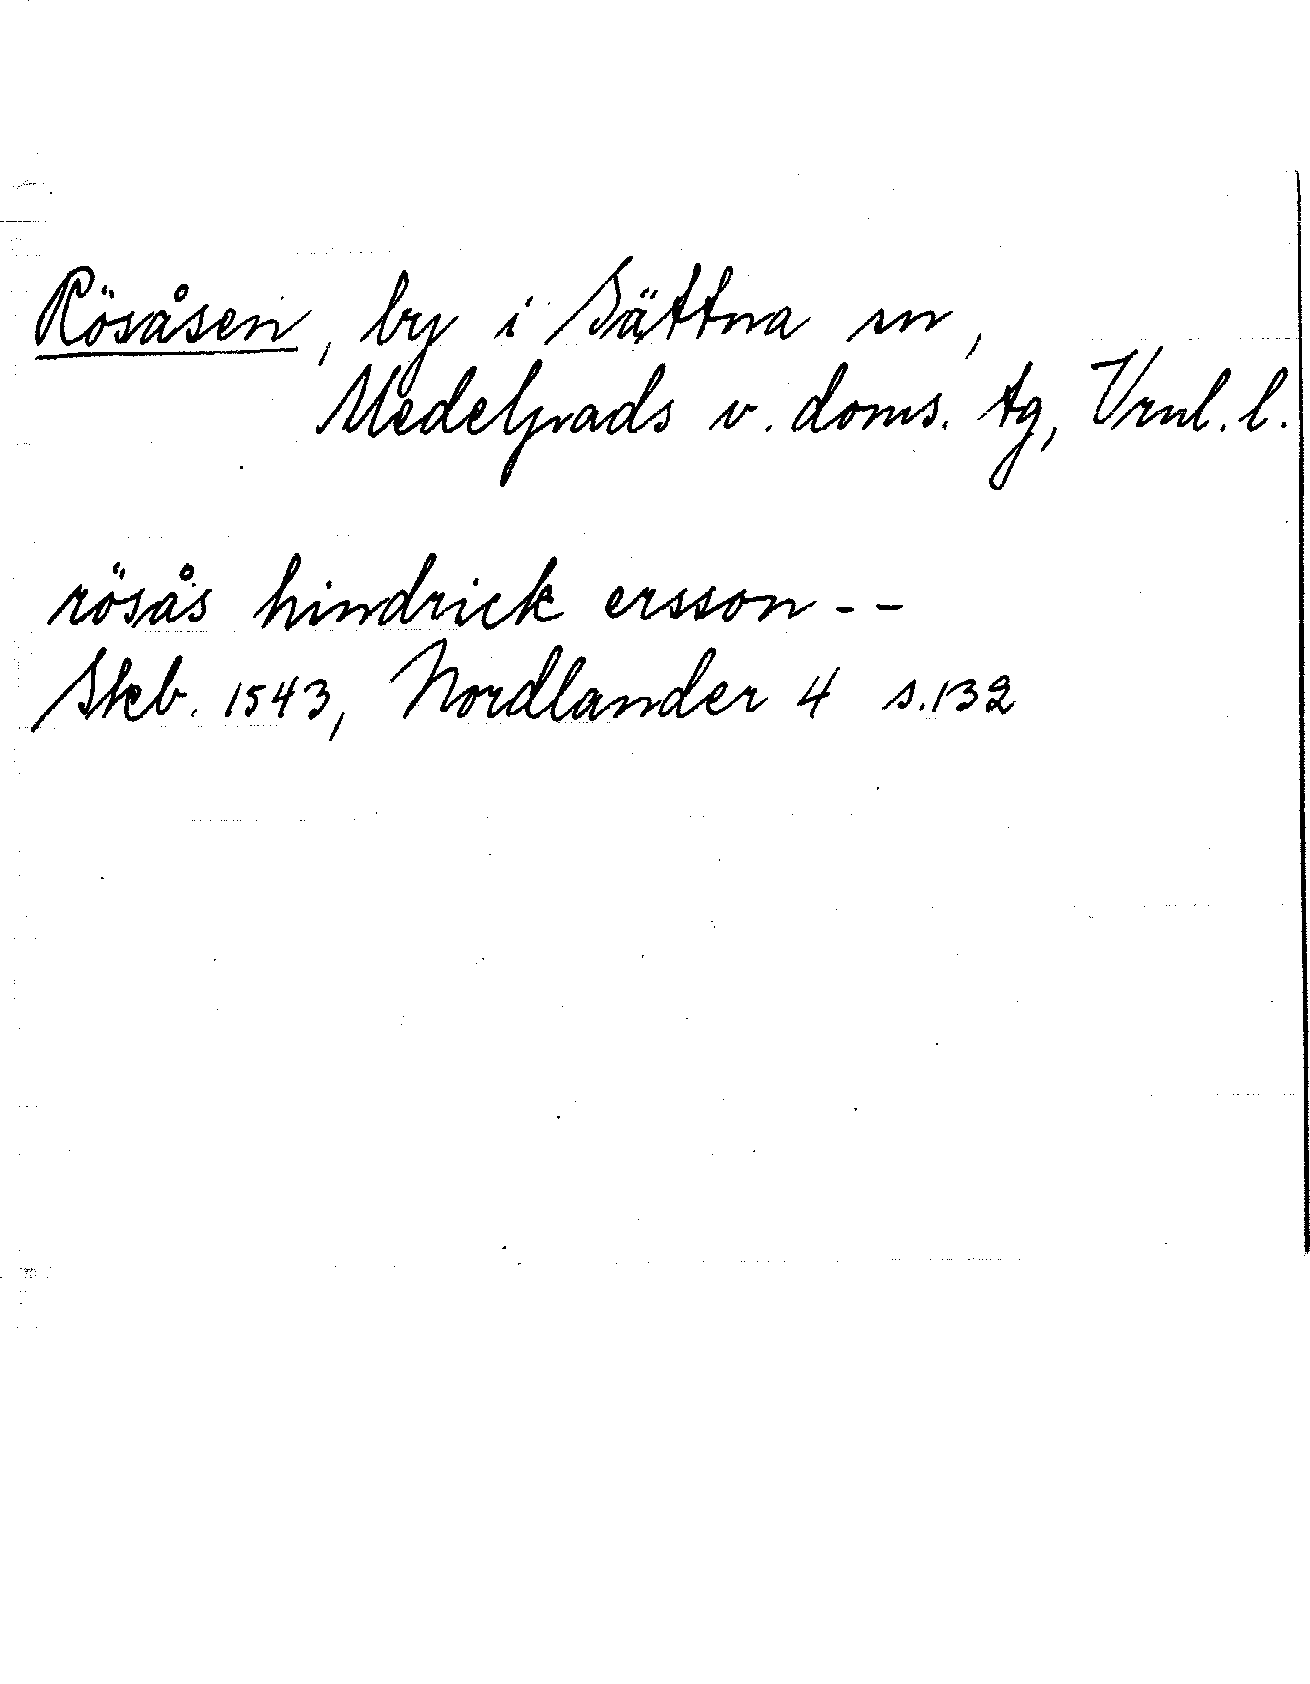 Rösåsen, by i Sättna sn,
Medelpads v. doms. tg, Vrnl. l.
rösås hindrick ersson - -
Skb. 1543, Nordlander 4 s. 132